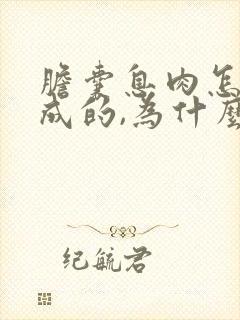 膽囊息肉怎
成的,為什麼
紀毓君